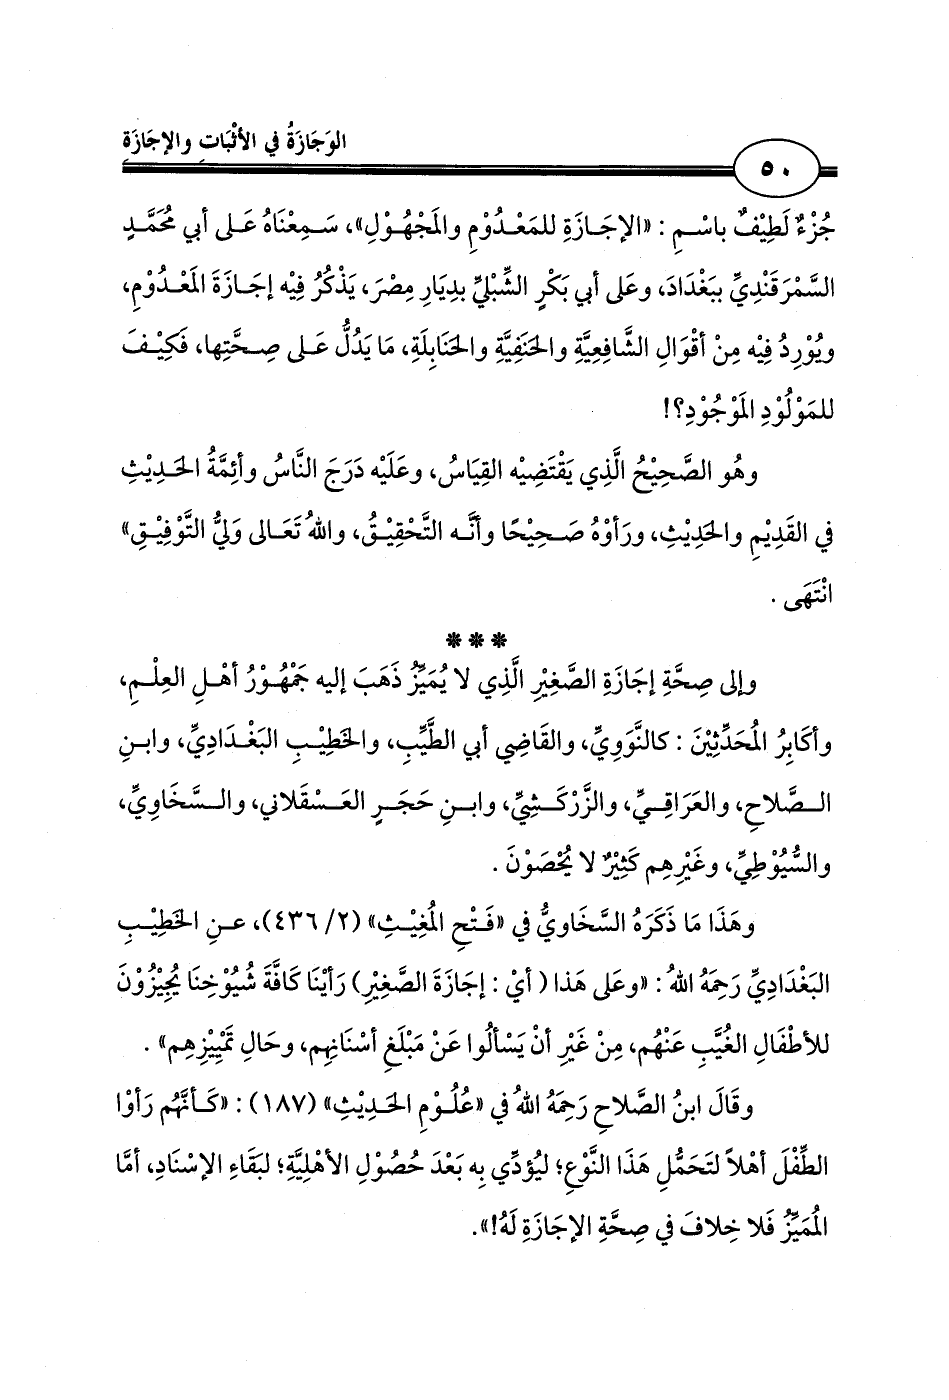 الوَجَازَةُ في الأثْبَاتِ والإجَازَةِ
٥٠
جُزْءٌ لَطِيْفٌ باسْمِ : «الإجَازَةِ للمَعْدُوْمِ والمَجْهُوْلِ»، سَمِعْنَاهُ عَلى أبي مُحَمَّدٍ
السَّمْرَقَنْدِيِّ ببَغْدَادَ، وعَلى أبي بَكْرٍ الشِّبْليِّ بدِيَارِ مِصْرَ، يَذْكُرُ فِيْه إجَازَةَ المَعْدُوْمِ،
ويُوْرِدُ فِيْه مِنْ أقْوَالِ الشَّافِعِيَّةِ والحَنَفِيَّةِ والحَنَابِلَةِ، مَا يَدُلُّ عَلى صِحَّتِها، فَكِيْفَ
للمَوْلُوْدِ المَوْجُوْدِ؟!
وهُو الصَّحِيْحُ الَّذِي يَقْتَضِيْه القِيَاسُ، وعَلَيْه دَرَجَ النَّاسُ وأئِمَّةُ الحَدِيْثِ
في القَدِيْمِ والحَدِيْثِ، ورَأوْهُ صَحِيْحًا وأنَّه التَّحْقِيْقُ، واللهُ تَعَالى وَليُّ التَّوْفِيْقِ»
انْتَهَى .
***
وإلى صِحَّةِ إجَازَةِ الصَّغِيْرِ الَّذِي لا يُمَيِّزُ ذَهَبَ إليه جَمْهُوْرُ أهْلِ العِلْمِ،
وأكَابِرُ المُحَدِّثِيْنَ : كالنَّوَوِيِّ، والقَاضِي أبي الطَّيِّبِ، والخَطِيْبِ البَغْدَادِيِّ، وابنِ
الصَّلاحِ، والعَرَاقِيِّ، والزَّرْكَشِيِّ، وابنِ حَجَرٍ العَسْقَلاني، والسَّخَاوِيِّ،
والسُّيُوْطِيِّ، وغَيْرِهِم كَثِيْرٌ لا يُحْصَوْنَ .
وهَذَا مَا ذَكَرَهُ السَّخَاوِيُّ في «فَتْحِ المُغِيْثِ» (٢/ ٤٣٦)، عَنِ الخَطِيْبِ
البَغْدَادِيِّ رَحِمَهُ اللهُ : «وعَلى هَذَا ( أيْ : إجَازَةَ الصَّغِيْرِ) رَأيْنَا كَافَّةَ شُيُوْخِنَا يُجِيْزُوْنَ
للأطْفَالِ الغُيَّبِ عَنْهُم، مِنْ غَيْرِ أنْ يَسْألُوا عَنْ مَبْلَغِ أسْنَانِهِم، وحَالِ تَمْيِيْزِهِم» .
وقَالَ ابنُ الصَّلاحِ رَحِمَهُ اللهُ في «عُلُوْمِ الحَدِيْثِ» (١٨٧) : «كَأنَّهُم رَأوْا
الطِّفْلَ أهْلاً لتَحَمُّلِ هَذَا النَّوْعِ؛ ليُؤدِّي به بَعْدَ حُصُوْلِ الأهْلِيَّةِ؛ لبَقَاءِ الإسْنَادِ، أمَّا
المُمَيِّزُ فَلا خِلافَ في صِحَّةِ الإجَازَةِ لَهُ!».